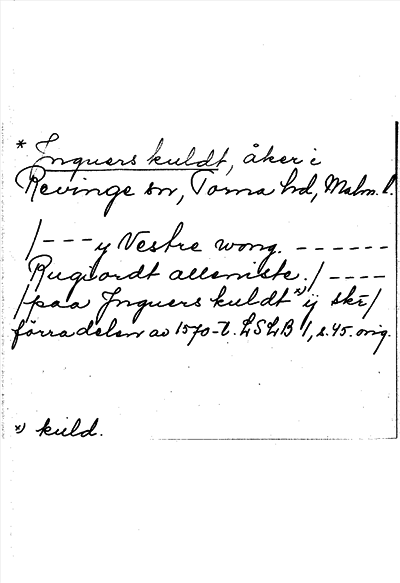 * Jnguers kuldt, åker i
Revinge sn, Torna hd, Malm. l.
/---y Vestre wong. ------
Rugiordt allsmiste./----
/paa Jnguers kuldt x) ij ske/
förra delen av 1570-t. LSLB 1, s. 45. orig.
x) kuld.